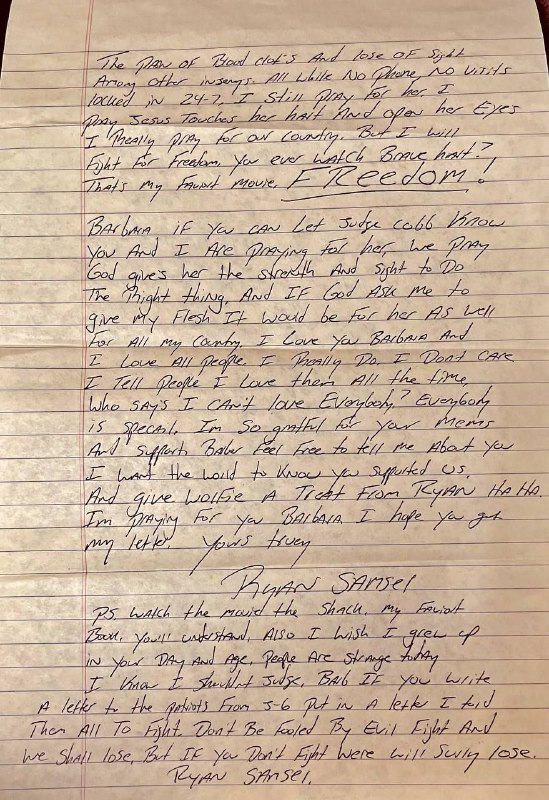 The Pain of Blood clot's And lose of Sight
Among other inserys. All while No Phone, No Visits
locked in 24-7. I Still Pray For her I
Pray Jesus Touches her hart And open her Eyes
I Really pray For our country. But I will
Fight For Freedom. You ever watch Brave hart?
That's my Faviort movie. FREEdom!
BArbara if you can Let Judge Cobb Know
you And I Are Praying for her, we pray
God give's her the strength And Sight to Do
The Right thing, And IF God Ask me to
give my Flesh It would be for her As well
For All my country. I Love you Barbara And
I Love All people. I Really Do. I Dont care
I Tell People I Love them All the time,
Who say's I can't love Everybody? Everybody
is Special. Im So gratful for your Mems
And Support. Feel Free to tell me About you
I want the world to Know you supported us.
And give Wolfie A Treat From RYAN HA HA.
Im Praying For you BARBARA I hope you get
my letter. yours truey
RYAN SAMSEl
P.S. Watch the movie the Shack. My Faviort
Book. You'll understand, Also I wish I grew up
in your Day and Age, People Are strange today
I Know I Should,nt Judge. Barb IF you write
A letter to the patriots From J-6 Put in A letter I told
Them All To Fight. Don't Be Fooled By Evil Fight And
We Shall lose, But IF you Don't Fight were will Surly lose.
RYAN SAMSEl.